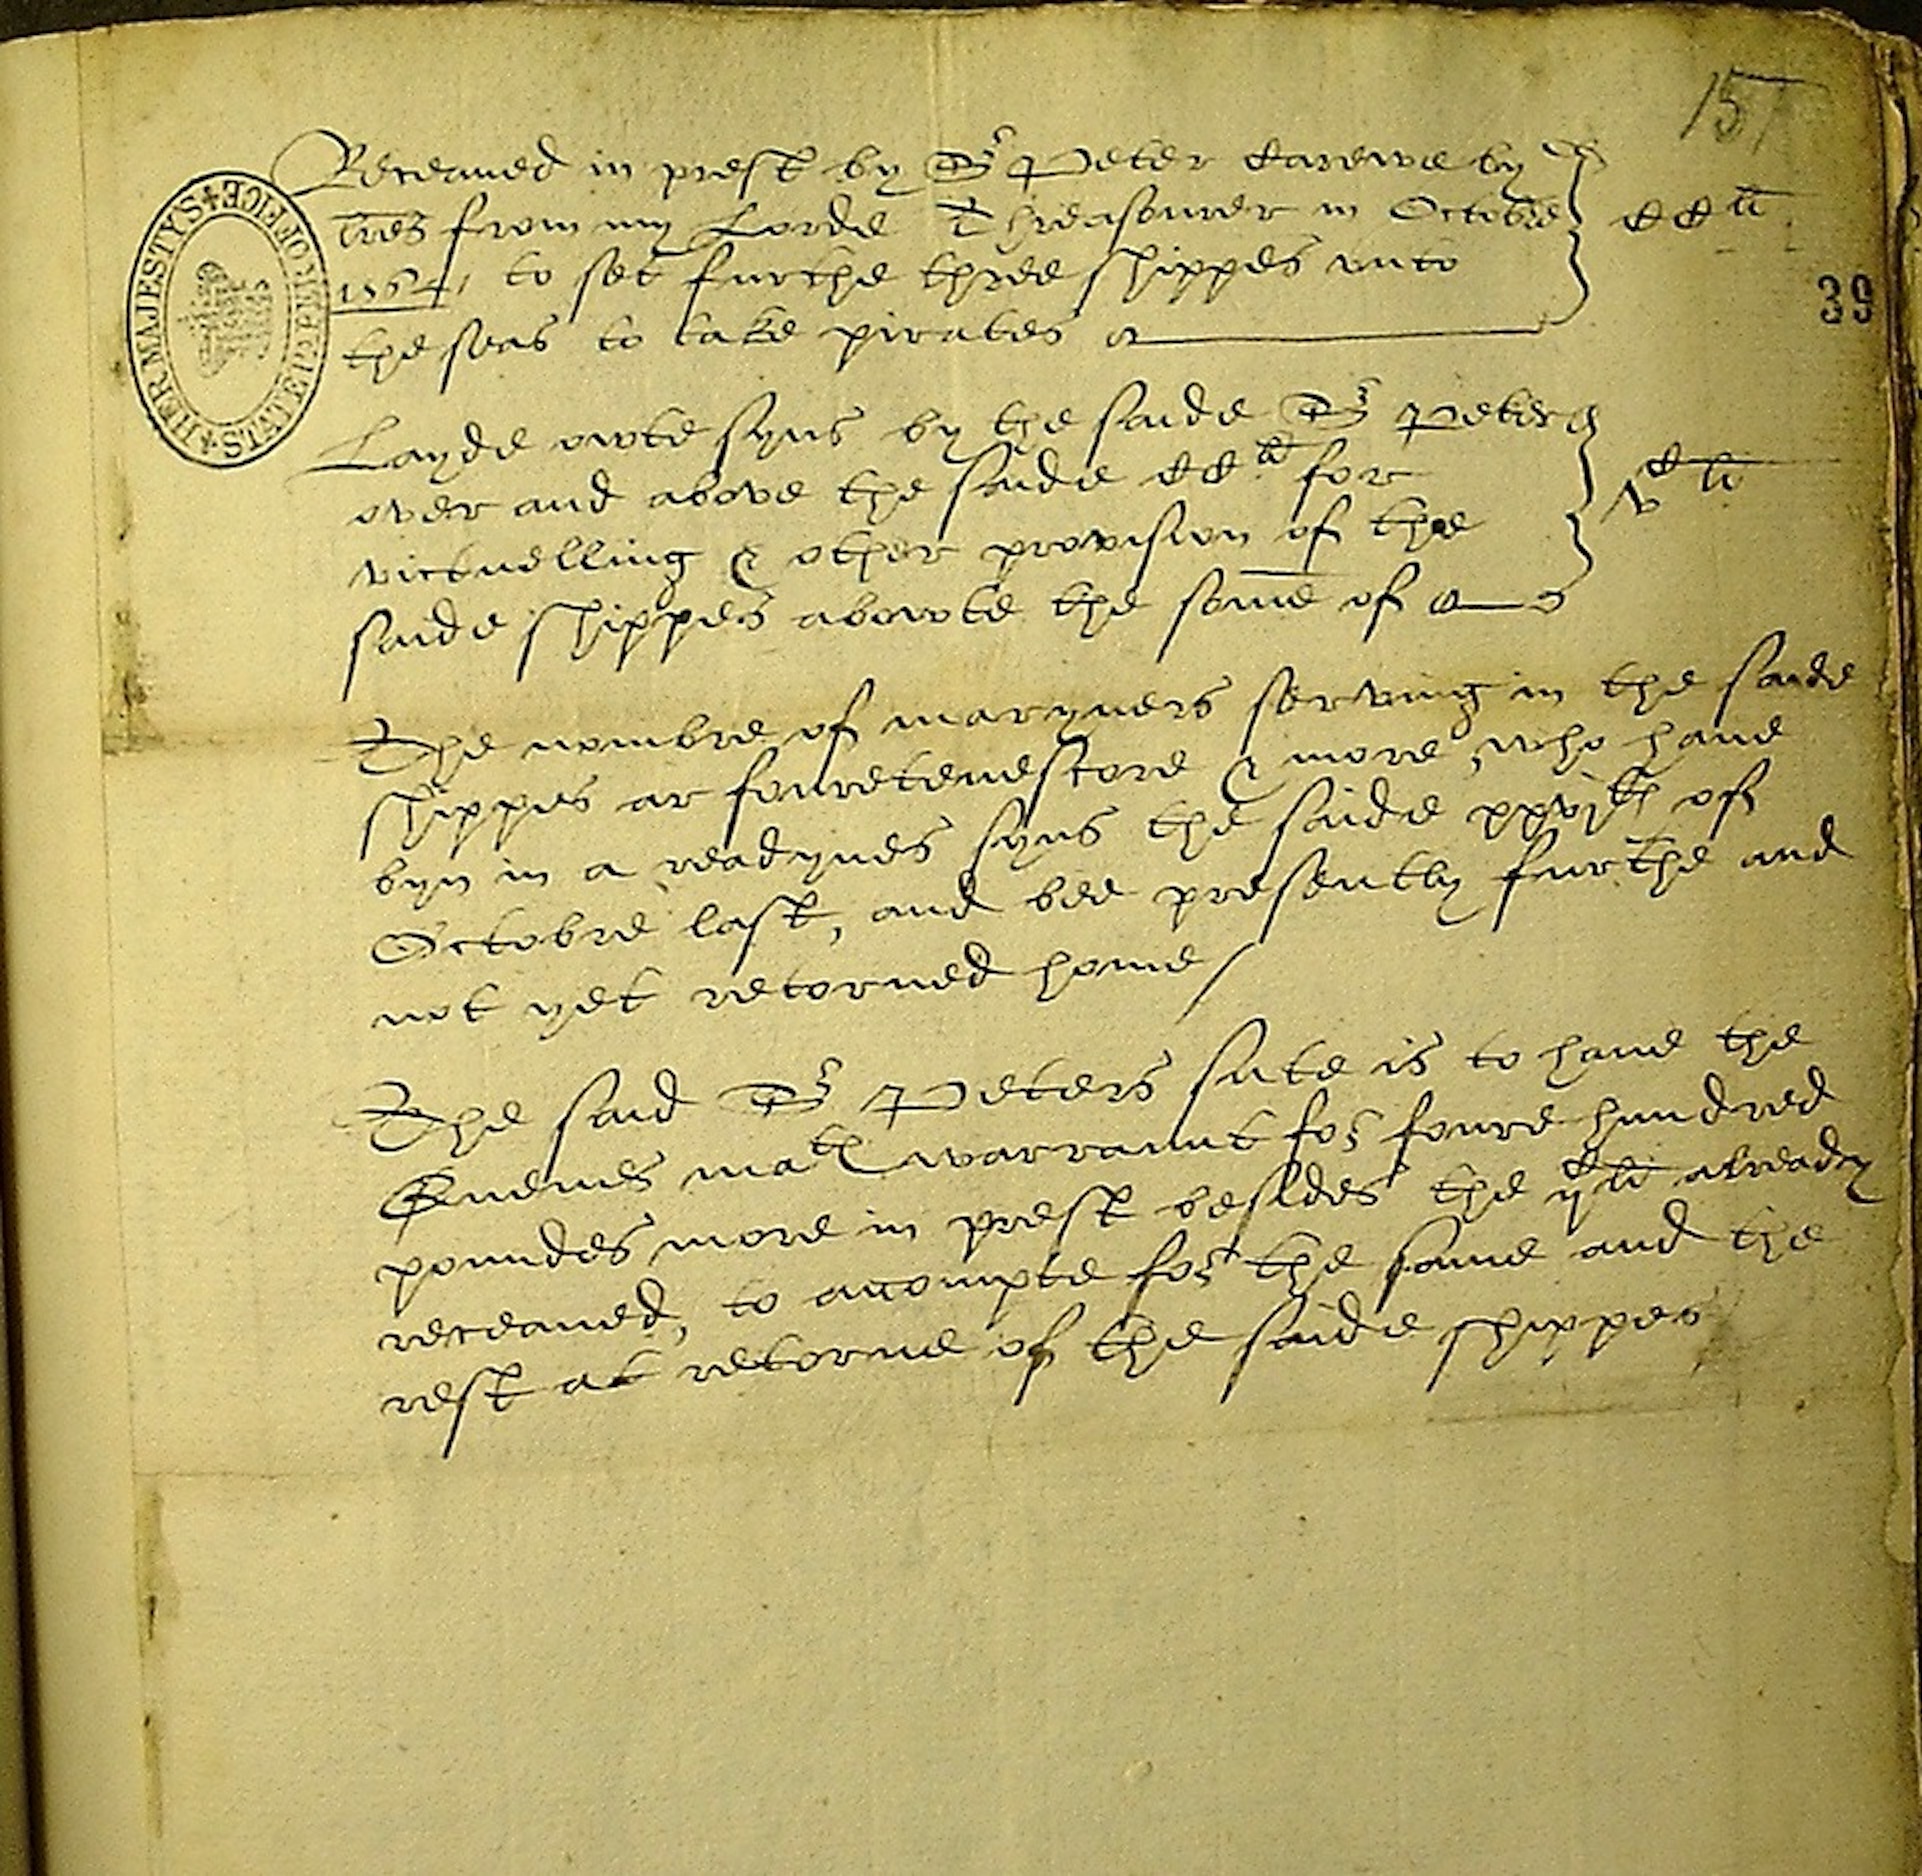 157
Receaued in prest by Sr Peter Carewe by
lres from my Lorde Threasourer in Octobre CCli
1564, to set furthe three shippes vnto
39
the seas to take pirates
Layde owte syns by the saide Sr Peter
over and above the saide CCli for vC li
victuelling & other provision of the
saide shippes abowte the some of
The nombre of maryners serving in the saide
shippes ar fouretenescore & more, who haue
byn in a readynes syns the saide xxvjth of
Octobre last, and bee presently furthe and
not yet retorned home
The said Sr Peters sute is to haue the
Quenes matis warraunt for foure hundred
poundes more in prest besides the ijC li already
receaued, to accompte for the same and the
rest at retorne of the saide shippes
HER MAJESTYS STATE PAPER OFFICE